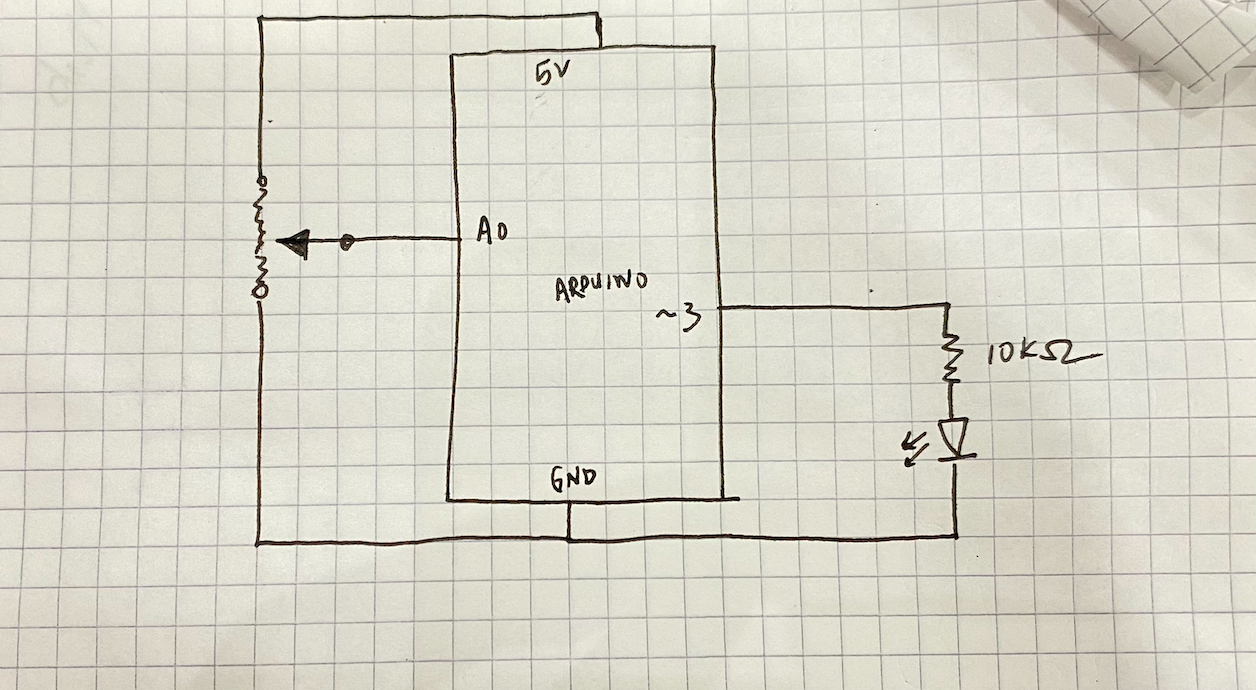 5V
A0
ARDUINO
~3
10KΩ
GND